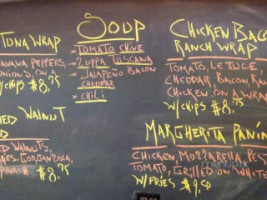 TUNA WRAP
BANANA PEPPERS,
ONIONS ON
W/CHIPS $8.75
WALNUT
WALNUTS,
GORGONZOLA,
$8.75
SOUP
TOMATO CHIVE
ZUPPA TUSCANA
JALAPEÑO BACON
CHEDDAR
CHILI
CHICKEN BAC
RANCH WRAP
TOMATO, LETTUCE
CHEDDAR, BACON, RAN
CHICKEN ON A WRAP
W/CHIPS $8.75
MARGHERITA PANIN
CHICKEN, MOZZARELLA, PES
TOMATO, GRILLED ON WHIT
W/FRIES $9.50